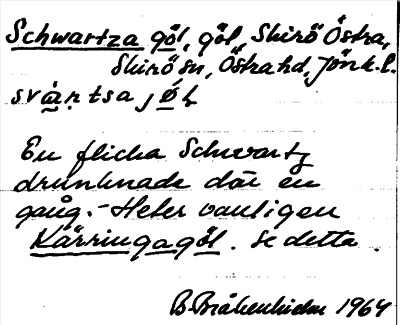 Schwartza göl, göl, Skirö Östra,
Skirö sn, Östra hd, Jönk. l.
svártsa jǿl
En flicka Schwartz
drunknade där en
gång. - Heter vanligen
Kärringagöl. Se detta.
B. Bråkenhielm 1964